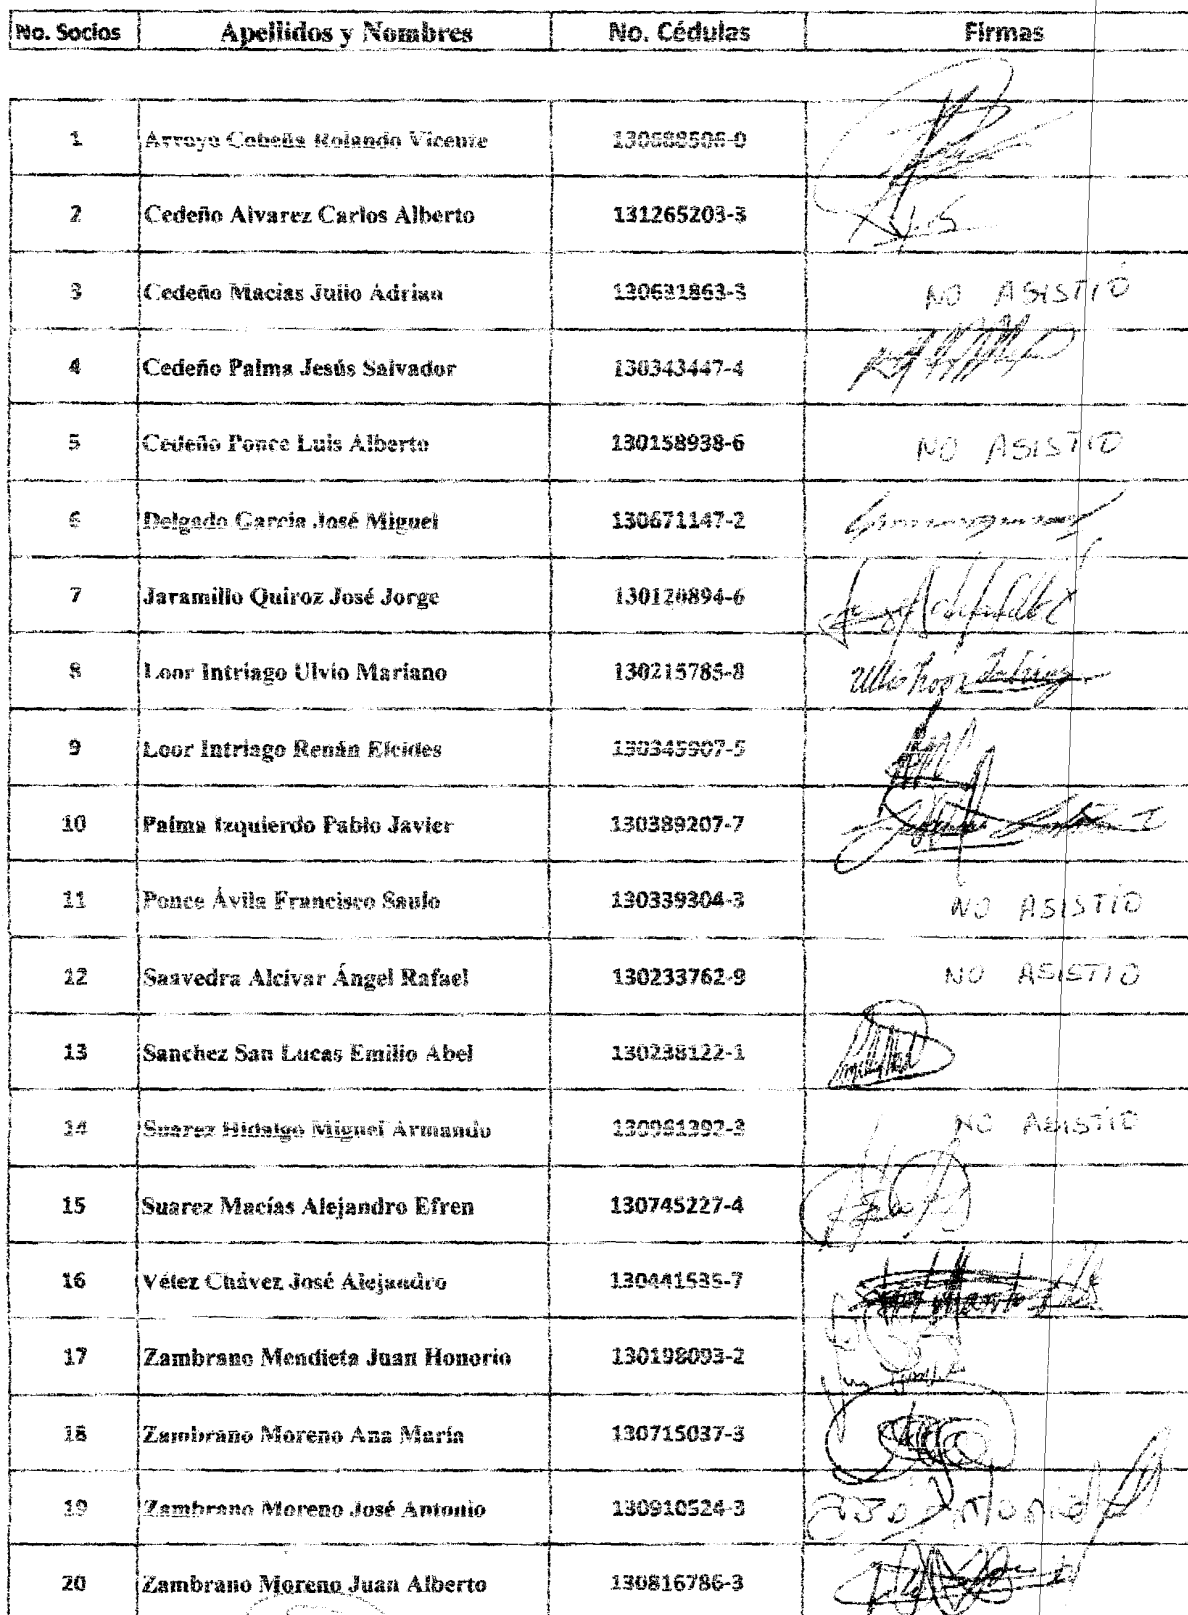 No. Socios Apellidos y Nombres No. Cédulas Firmas
1 Arroyo Cobeña Rolando Vicente 130688506-0
2 Cedeño Alvarez Carlos Alberto 131265203-3
3 Cedeño Macias Julio Adrian 130631863-3 NO ASISTIÓ
4 Cedeño Palma Jesús Salvador 130343447-4
5 Cedeño Ponce Luis Alberto 130158938-6 NO ASISTIO
6 Delgado Garcia José Miguel 130671147-2
7 Jaramillo Quiroz José Jorge 130120894-6
8 Loor Intriago Ulvio Mariano 130215785-8
9 Loor Intriago Renán Elcides 130345907-5
10 Palma Izquierdo Pablo Javier 130389207-7
11 Ponce Ávila Francisco Saulo 130339304-3 NO ASISTIÓ
12 Saavedra Alcivar Ángel Rafael 130233762-9 NO ASISTIO
13 Sanchez San Lucas Emilio Abel 130238122-1
14 Suarez Hidalgo Miguel Armando 130961392-3 NO ASISTIÓ
15 Suarez Macías Alejandro Efren 130745227-4
16 Vélez Chávez José Alejandro 130441535-7
17 Zambrano Mendieta Juan Honorio 130198093-2
18 Zambrano Moreno Ana María 130715037-3
19 Zambrano Moreno José Antonio 130910524-3
20 Zambrano Moreno Juan Alberto 130816786-3